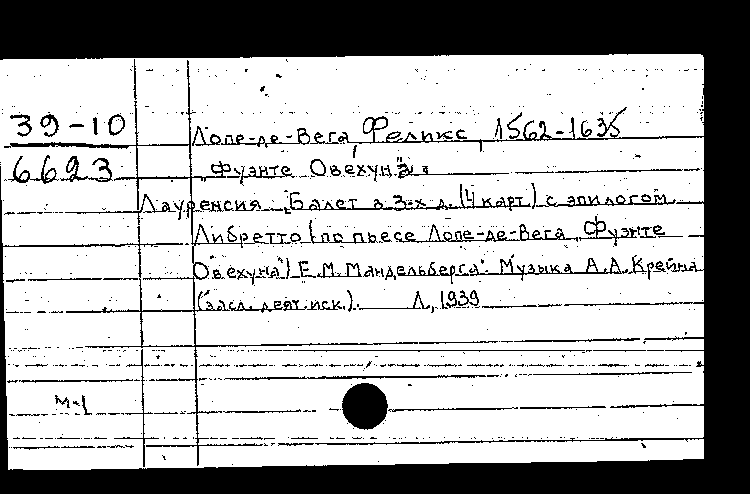 39-10
6623
Лопе-де-Вега, Феликс, 1562-1635
„Фуэнте Овехуна"
Лауренсия. „Балет в 3-х д. (4 карт.) с эпилогом.
Либретто (по пьесе Лопе-де-Вега „Фуэнте
Овехуна") Е.М. Мандельберга". Музыка А.А. Крейна
(засл. деят. иск.). Л., 1939
М-1